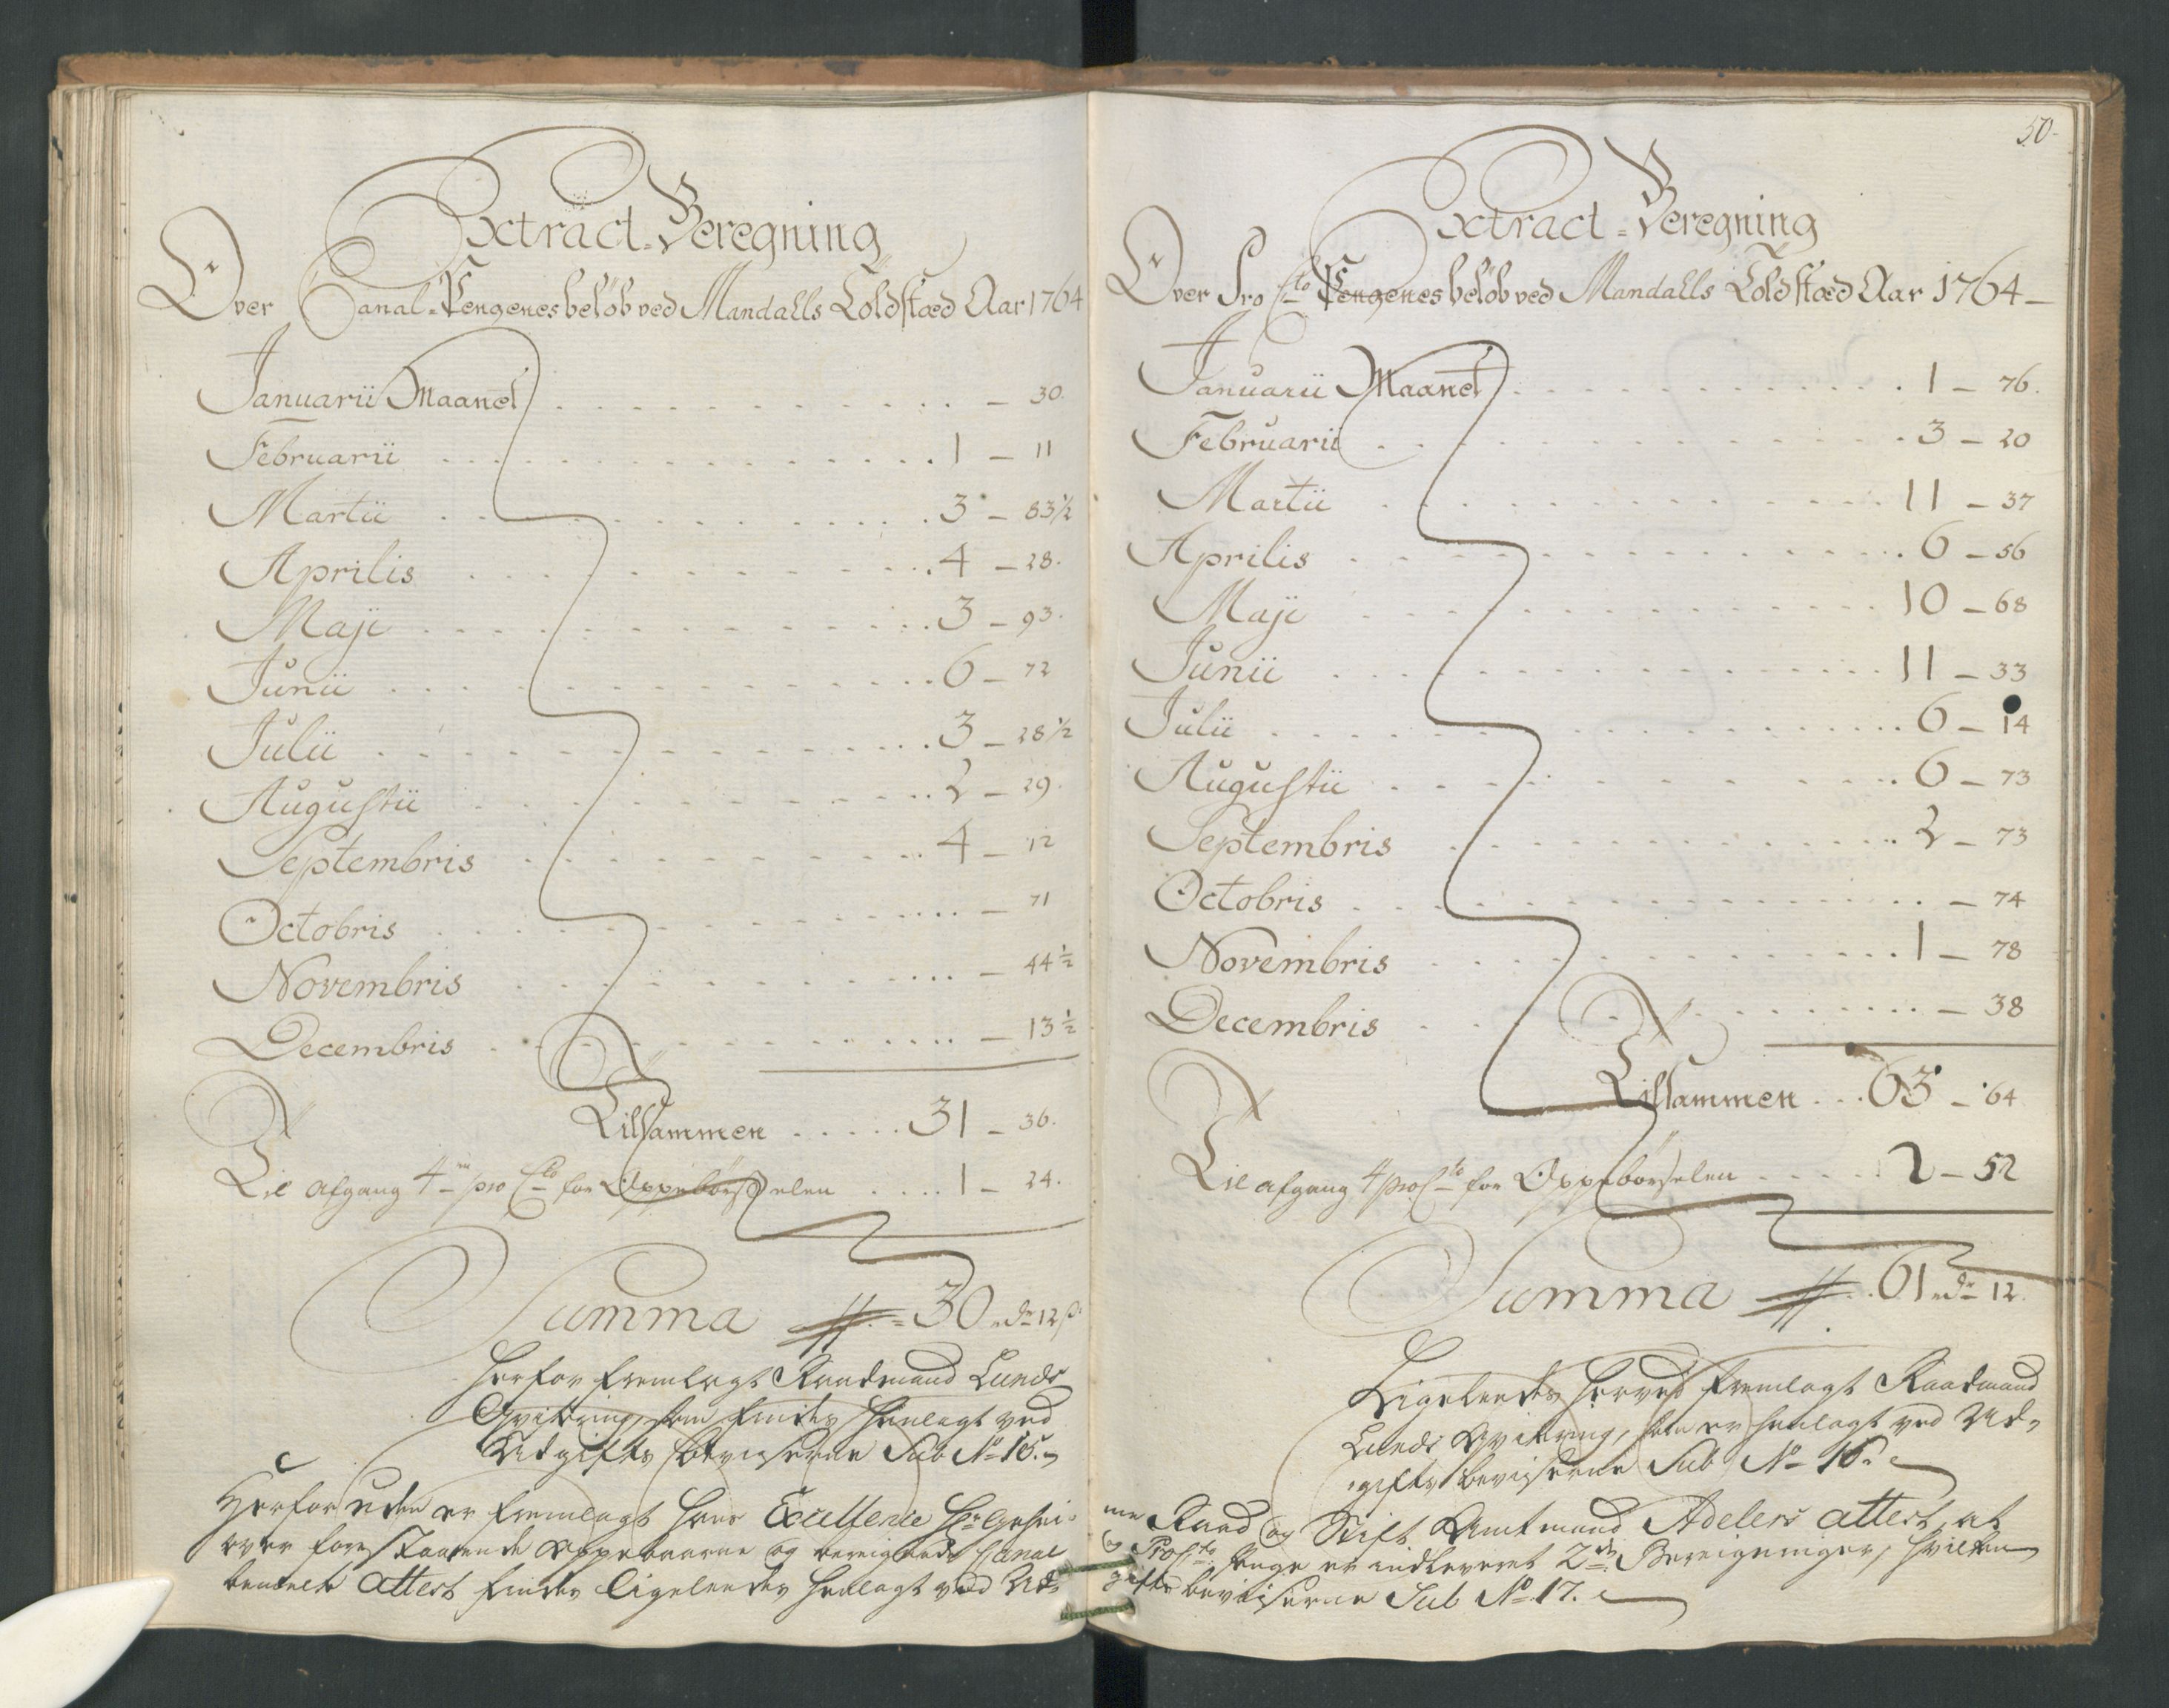 Extract-Beregning
Over Canal-Pengenes beløb ved Mandalls Toldstæd Aar 1764
Januarii Maaned . . . . . . . . . . . . — 30.
Februarii . . . . . . . . . . . . 1 — 11
Martii . . . . . . . . . . . . 3 — 83½
Aprilis . . . . . . . . . . . . 4 — 28.
Maji . . . . . . . . . . . . 3 — 93.
Junii . . . . . . . . . . . . 6 — 72
Julii . . . . . . . . . . . . 3 — 28½
Augustii . . . . . . . . . . . . 2 — 29.
Septembris . . . . . . . . . . . . 4 — 12
Octobris . . . . . . . . . . . . — 71
Novembris . . . . . . . . . . . . — 44½
Decembris . . . . . . . . . . . . — 13½
Tilsammen . . . . . 31 — 36.
Til afgang 4 pro Cto for Oppebørselen . . . . 1 — 24.
Summa 30 dr 12 s.
Herfor fremlagt Raadmand Lunds
Qvitering, som findes henlagt ved
Udgifts beviserne Sub No 15.
Herforuden er fremlagt hans Excellence Hr Gehei-
over forestaaende oppebaarne og beregnede Canal
benævnte attest findes ligeledes henlagt ved Ud-
50.
Extract-Beregning
Over Pro Cto Pengenes beløb ved Mandalls Toldstæd Aar 1764—
Januarii Maaned . . . . . . . . . . . . 1 — 76.
Februarii . . . . . . . . . . . . 3 — 20
Martii . . . . . . . . . . . . 11 — 37
Aprilis . . . . . . . . . . . . 6 — 56
Maji . . . . . . . . . . . . 10 — 68
Junii . . . . . . . . . . . . 11 — 33
Julii . . . . . . . . . . . . 6 — 14
Augustii . . . . . . . . . . . . 6 — 73
Septembris . . . . . . . . . . . . 2 — 73
Octobris . . . . . . . . . . . . — 74
Novembris . . . . . . . . . . . . 1 — 78
Decembris . . . . . . . . . . . . — 38
Tilsammen . . . 63 — 64
Til afgang 4 pro Cto for Oppebørselen . . . . . 2 — 52
Summa 61 dr 12.
Ligeledes herved fremlagt Raadmand
Lunds Qvitering, som er henlagt ved Ud-
gifts beviserne Sub No 16.
me Raad og Stift Amtmand Adelers attest, at
og Pro Cto penge er indleveret 2de Beregninger, hvilken
gifts beviserne Sub No 17.